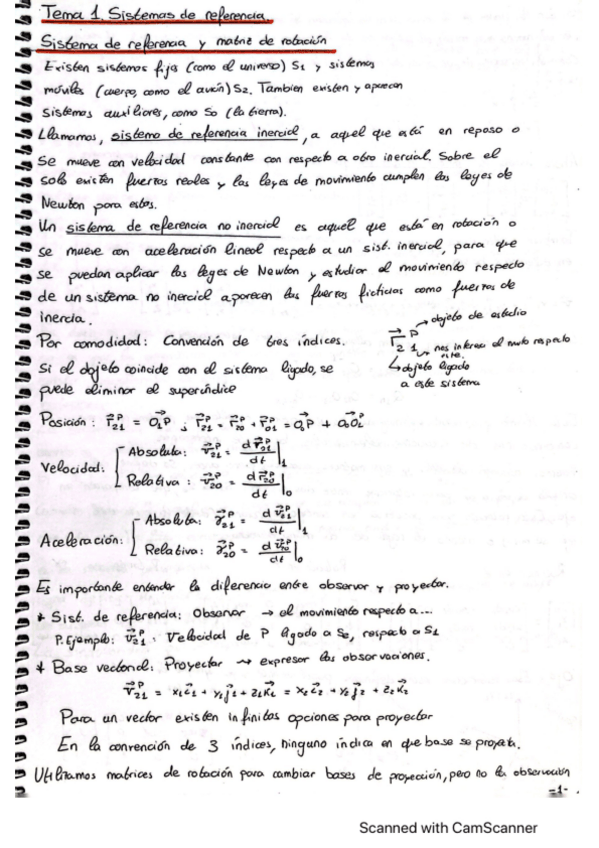 Tema 1. Sistemas de referencia
Sistema de referencia y matriz de rotación
Existen sistemas fijos (como el universo) S₁ y sistemas
móviles (cuerpo, como el avión) S₂. Tambien existen y aparecen
sistemas auxiliares, como S₀ (la tierra).
Llamamos, sistema de referencia inercial, a aquel que está en reposo o
se mueve con velocidad constante con respecto a otro inercial. Sobre el
solo existen fuerzas reales y las leyes de movimiento cumplen las leyes de
Newton para estos.
Un sistema de referencia no inercial es aquel que está en rotación o
se mueve con aceleración lineal respecto a un sist. inercial, para que
se puedan aplicar las leyes de Newton y estudiar el movimiento respecto
de un sistema no inercial aparecen las fuerzas ficticias como fuerzas de
inercia.
Por comodidad: Convención de tres índices.
r⃗₂₁ᴾ → objeto de estudio
nos interesa el mvto respecto
este.
↳ objeto ligado
a este sistema
Si el objeto coincide con el sistema ligado, se
puede eliminar el superíndice
Posición: r⃗₂₁ᴾ = O₁P ; r⃗₂₁ᴾ = r⃗₂₀ᴾ + r⃗₀₁ᴾ = O₀P + O₁O₀
Velocidad:
Absoluta: v⃗₂₁ᴾ = d r⃗₂₁ᴾ / dt |₁
Relativa: v⃗₂₀ᴾ = d r⃗₂₀ᴾ / dt |₀
Aceleración:
Absoluta: γ⃗₂₁ᴾ = d v⃗₂₁ᴾ / dt |₁
Relativa: γ⃗₂₀ᴾ = d v⃗₂₀ᴾ / dt |₀
Es importante entender la diferencia entre observar y proyectar.
* Sist. de referencia: Observar → el movimiento respecto a...
P. Ejemplo: v⃗₂₁ᴾ: Velocidad de P ligado a S₂, respecto a S₁
* Base vectorial: Proyectar → expresar las observaciones.
v⃗₂₁ᴾ = x₁i⃗₁ + y₁j⃗₁ + z₁k⃗₁ = x₂i⃗₂ + y₂j⃗₂ + z₂k⃗₂
Para un vector existen infinitas opciones para proyectar
En la convención de 3 índices, ninguno indica en que base se proyecta.
Utilizamos matrices de rotación para cambiar bases de proyección, pero no la observación
-1-
Scanned with CamScanner